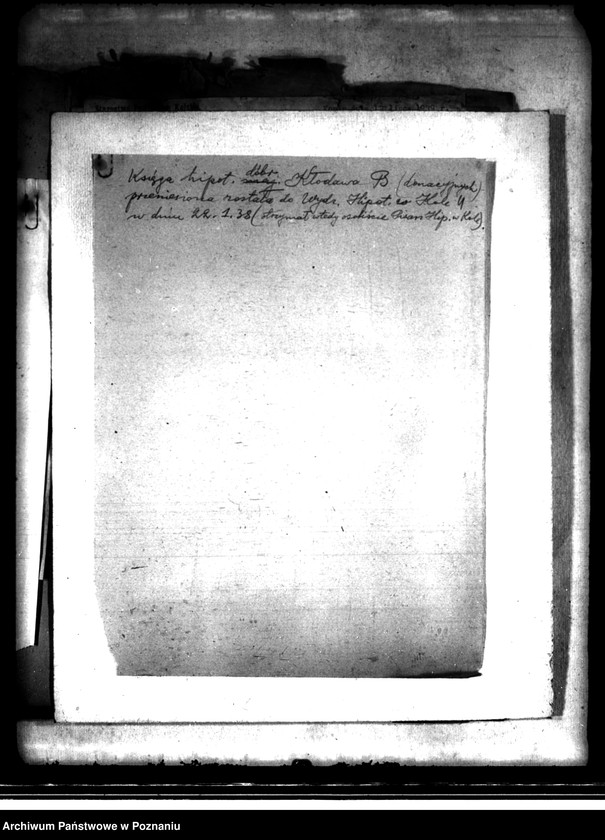 Księga hipot. dóbr Kłodawa B (donacyjnych)
przeniesiona została do Wydz. Hipot. w Kole
w dniu 22. 1. 38 (otrzymał wtedy osobiście Pisarz Hip. w Kole).
Archiwum Państwowe w Poznaniu